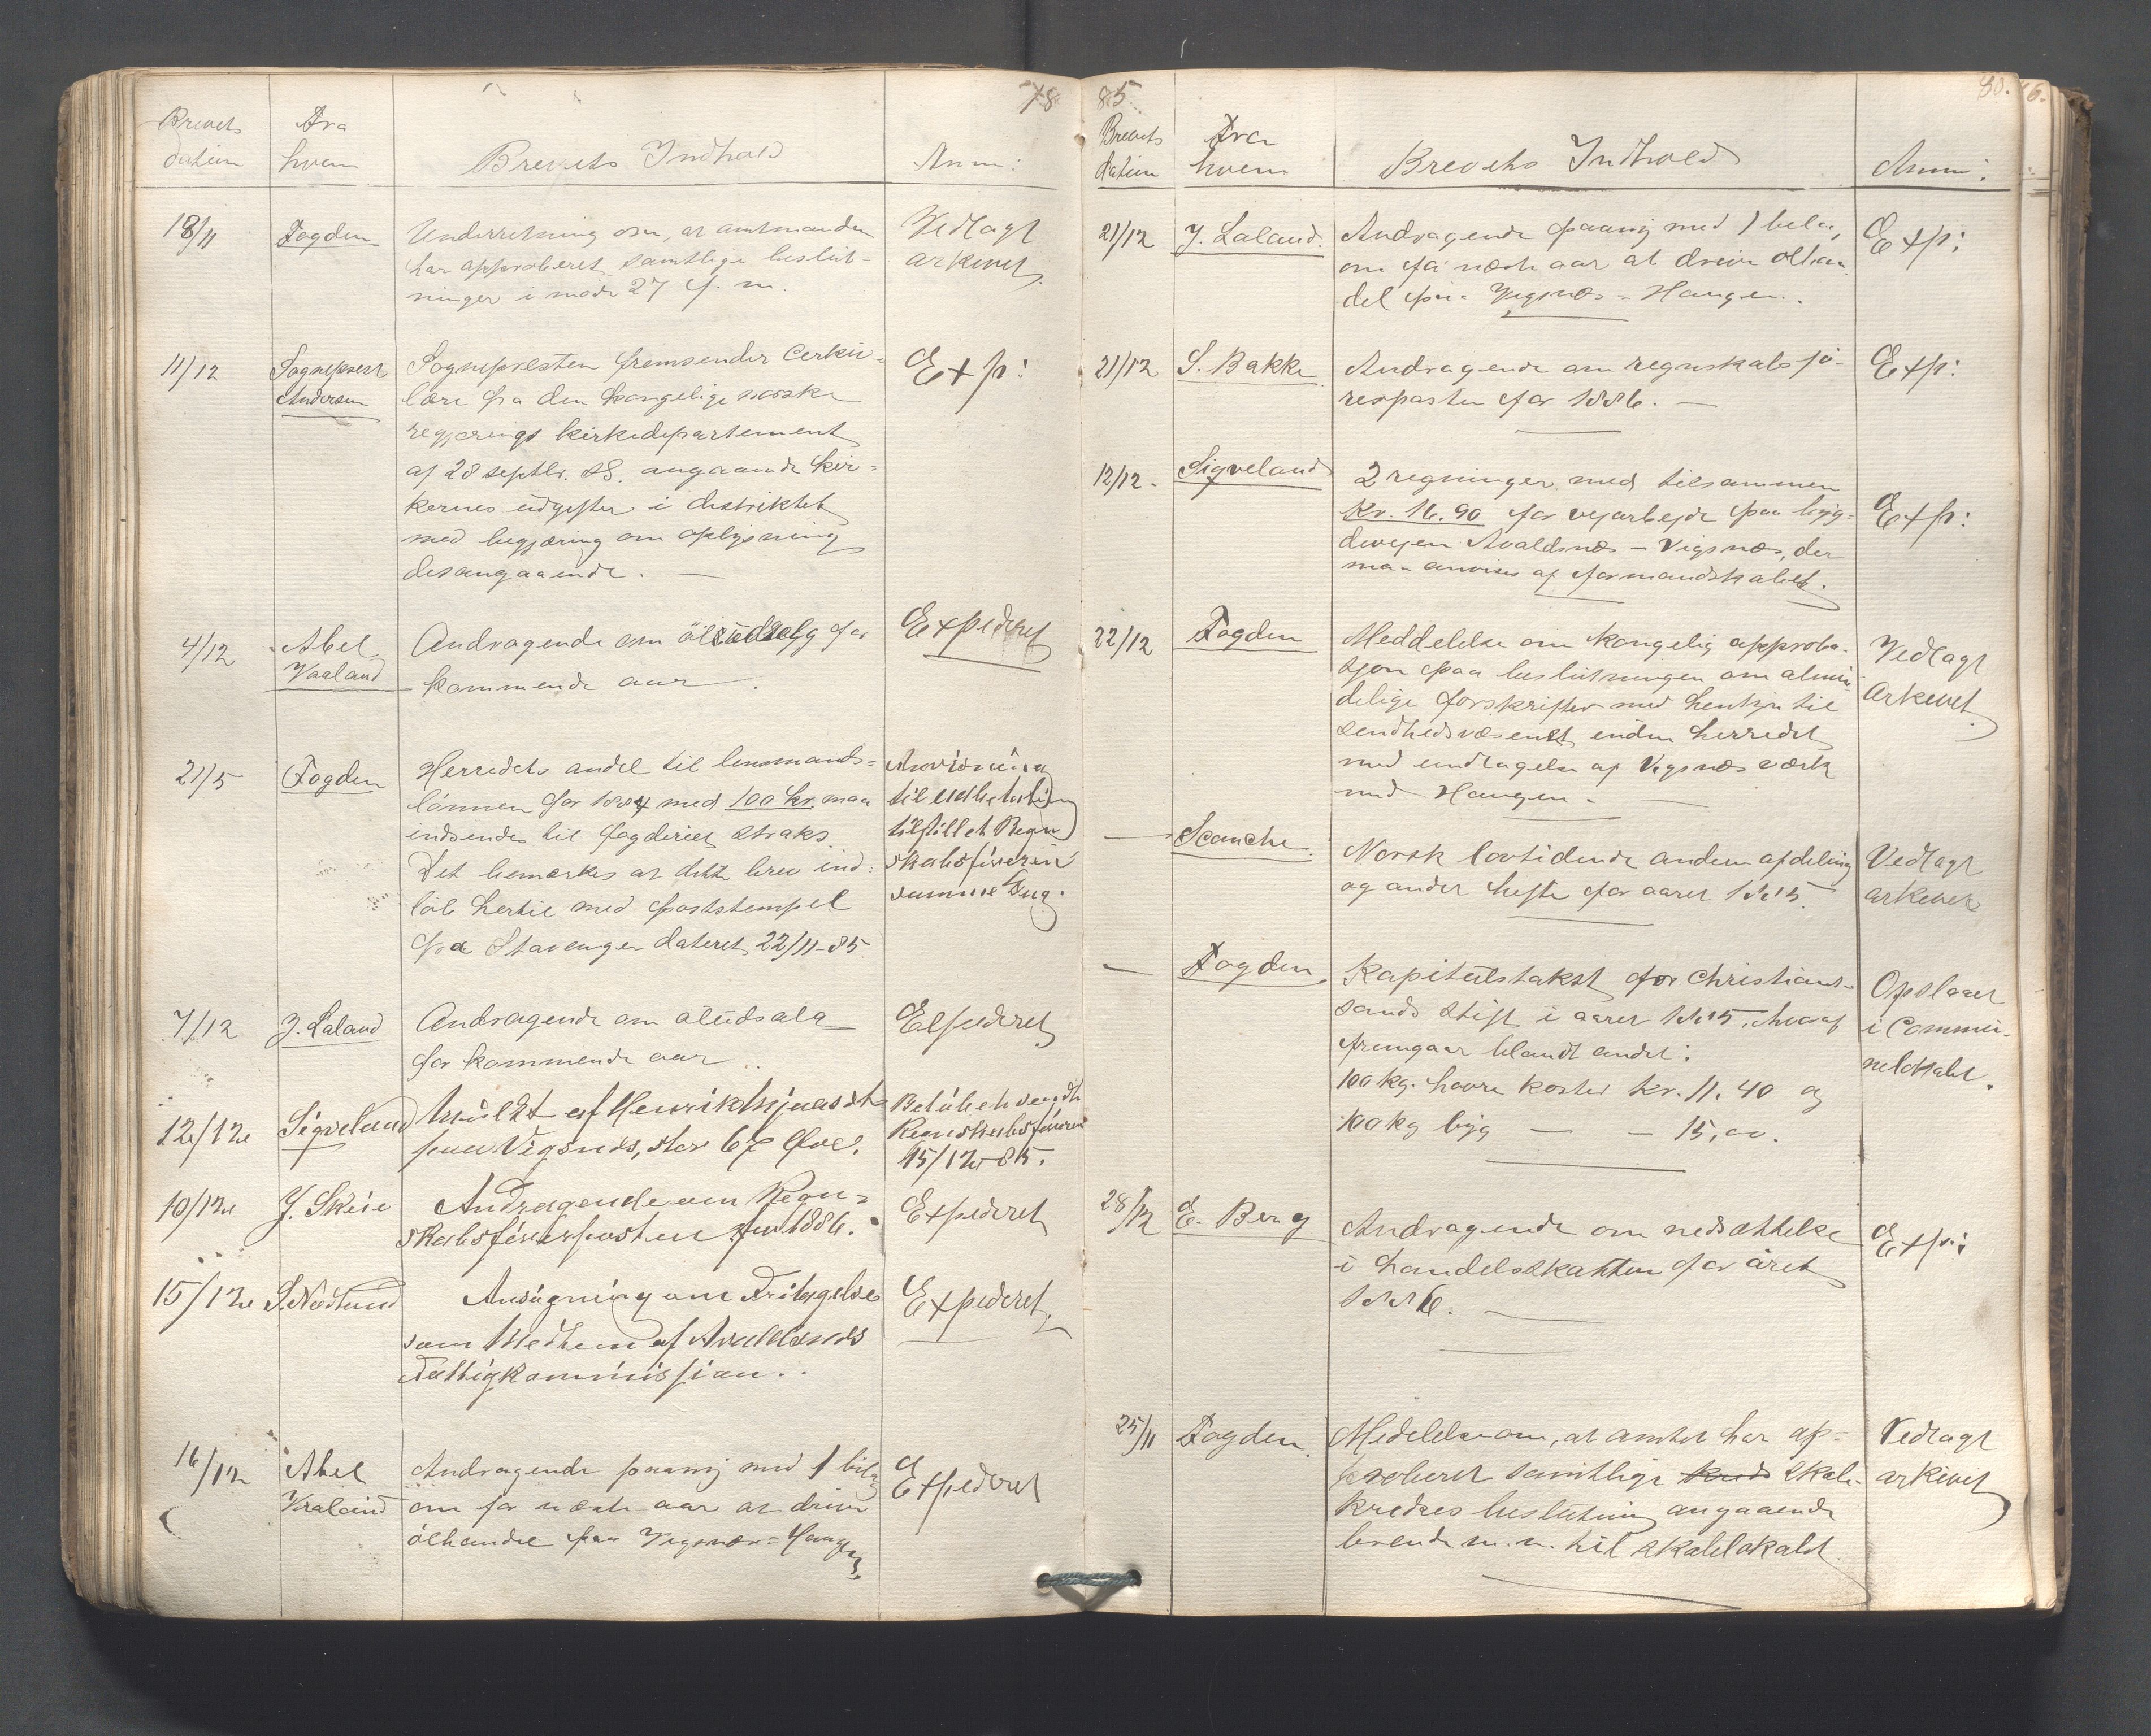 78
Brevets
datum
Fra
hvem
Brevets Indhold
Anm:
18/11
Fogden
Underretning om, at amtmanden
har approberet samtlige beslut-
ninger i møde 27 f. m.
Vedlagt
arkivet.
11/12
Sogneprest
Andersen
Sognepresten fremsender Cerku-
lære fra den kongelige norske
regjerings kirkedepartement
af 28 septbr. ds. angaaende kir-
kernes udgifter i distriktet
med begjæring om oplysning
desangaaende. —
Exp:
4/12
Abel
Vaaland
Andragende om øludsalg for
kommende aar.
Expederet
21/5
Fogden
Herredets andel til lensmands-
lønnen for 1884 med 100 kr. maa
indsendes til fogderiet straks.
Det bemærkes at dette brev ind-
løb hertil med poststempel
fra Stavanger dateret 22/11-85
Anvisning
til udbetaling
tilstillet Regn
skabsføreren
samme Dag.
7/12
J. Laland
Andragende om øludsalg
for kommende aar ..
Expederet
12/12
Sigveland
Mulkt af Henrik
paa Vigsnæs, stor
Regnskabsføreren
15/12-85.
10/12
J. Skeie
Andragende om Regn-
skabsførerposten for 1886.
Expederet
15/12
S. Nedland
Ansøgning om Fritagelse
som Medlem af Avaldsnæs
Fattigkommission..
Expederet
16/12
Abel
Vaaland
Andragende paany med 1 bilag
om for næste aar at drive
ølhandel paa Vigsnæs-Haugen
Expederet
85
80.
6.
Brevets
datum
Fra
hvem
Brevets Indhold
Anm:
21/12
J. Laland.
Andragende paany med 1 bilag,
om få næste aar at drive ølhan
del paa Vigsnæs-Haugen.
Exp:
21/12
S. Bakke
Andragende om regnskabsfø-
rerposten for 1886. —
Exp:
12/12.
Sigveland
2 regninger med tilsammen
Kr. 16.90 for vejarbejde paa byg-
devejen Avaldsnæs – Vigsnæs, der
maa anvises af formandskabet.
Exp:
22/12
Fogden
Meddelelse om kongelig approba-
sjon paa beslutningen om almin
delige forskrifter med hensyn til
sundhedsvæsenet inden herredet
med undtagelse af Vigsnæs værk
med Haugen. —
Vedlagt
Arkivet
—
Scanche.
Norsk lovtidende anden afdeling
og andet hefte for aaret 1885.
Vedlagt
arkivet
—
Fogden.
Kapitelstakst for Christian-
sands stift i aaret 1885, hvoraf
fremgaar blandt andet:
100 kg. havre koster kr. 11.40 og
100 kg byg — — 15,00.
Opslaaet
i Commu-
nelokalet.
28/12
E. Berg
Andragende om nedsættelse
i handelsskatten for året
1886. —
Exp:
25/11
Fogden.
Medelelse om, at amtet har ap-
proberet samtlige skole-
kredses beslutning angaaende
brende m.m. til skolelokalet
Vedlagt
arkivet